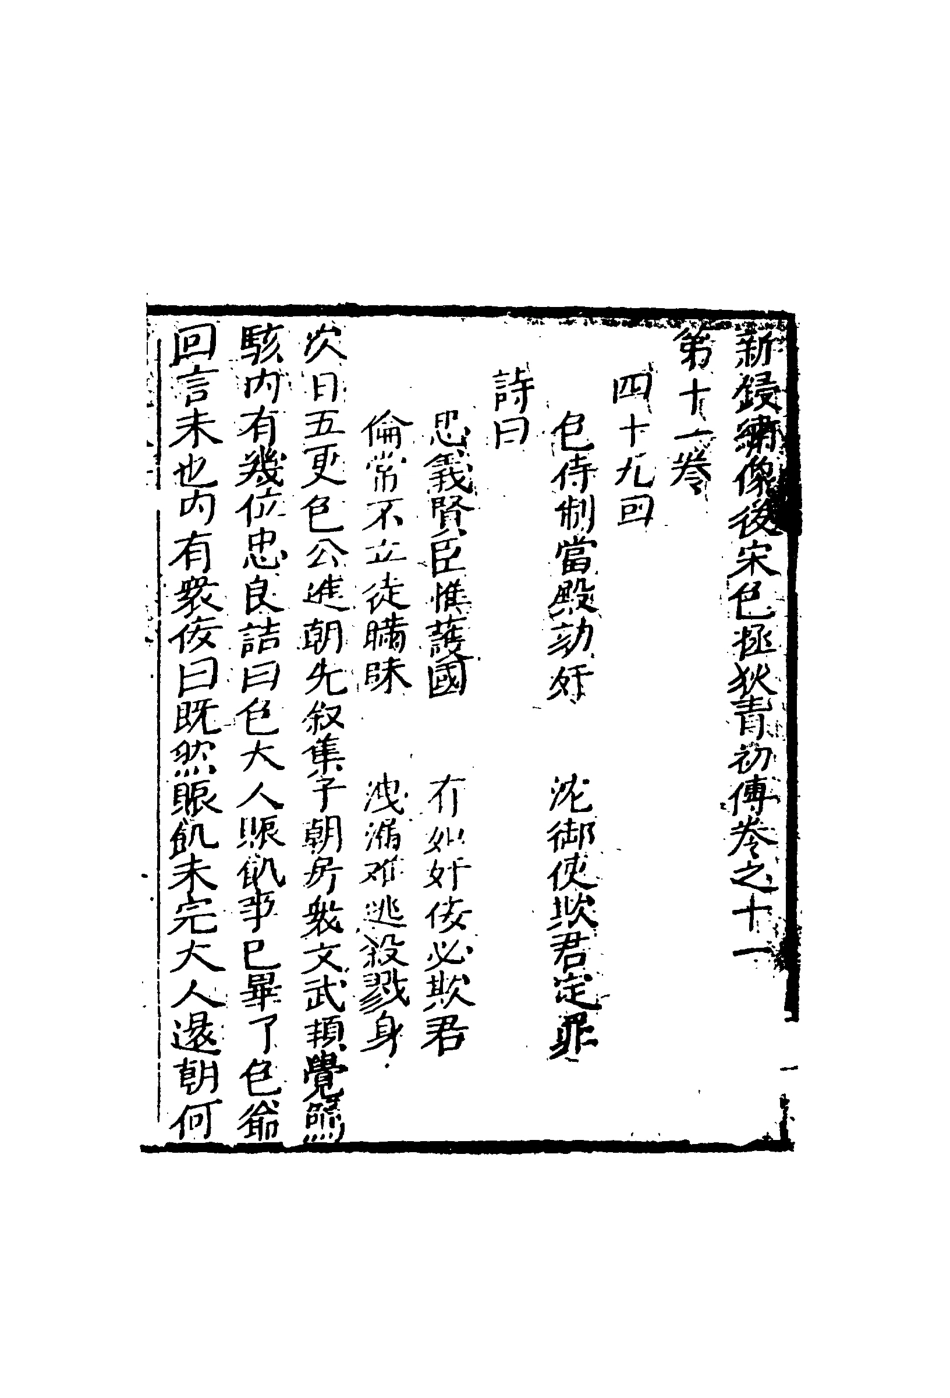 新鋟繡像後宋包拯狄青初傳卷之十一
第十一卷
四十九回
包待制當殿劾奸　沈御使欺君定罪
詩曰
忠義賢臣惟護國　冇如奸佞必欺君
倫常不立徒瞞昧　洩漏难逃殺戮身
次日五更包公進朝先叙集于朝房衆文武頓覺驚
駭内有幾位忠良詰曰包大人賑飢事已畢了包爺
回言未也内有衆佞曰既然賑飢未完大人還朝何